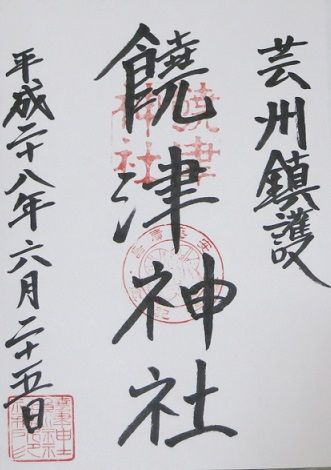 芸州鎮護
饒津神社
平成二十八年六月二十五日
饒津
神社